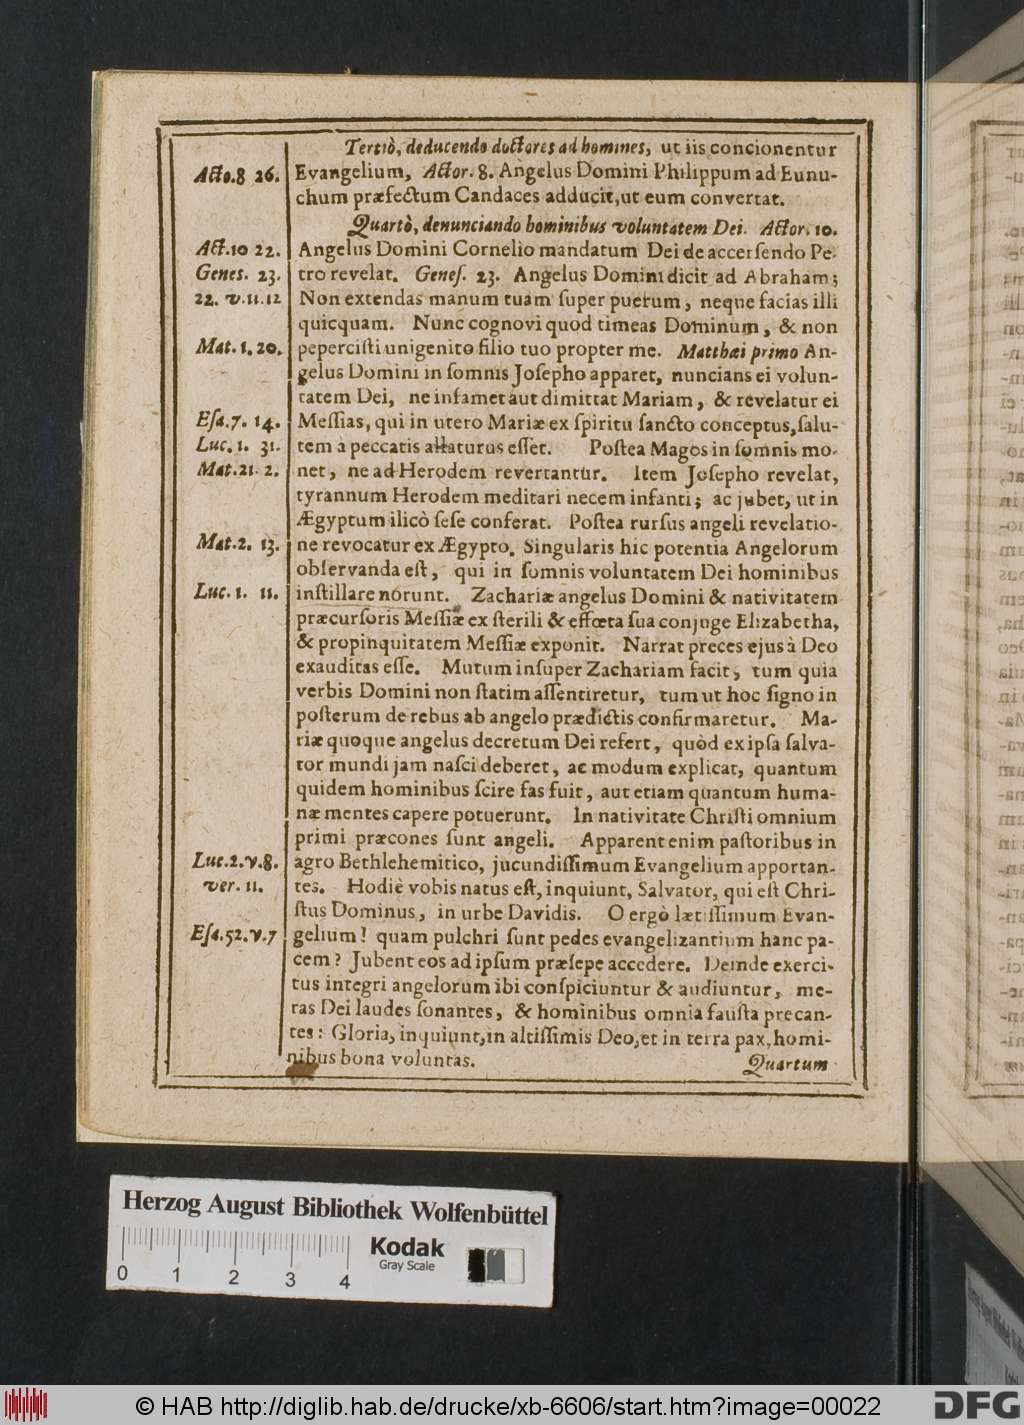 Tertiò, deducendo doctores ad homines, ut iis concionentur
Acto.8 26. Evangelium, Actor. 8. Angelus Domini Philippum ad Eunu-
chum præfectum Candaces adducit, ut eum convertat.
Quartò, denunciando hominibus voluntatem Dei. Actor. 10.
Act.10 22. Angelus Domini Cornelio mandatum Dei de accersendo Pe-
Genes. 23. tro revelat. Genes. 23. Angelus Domini dicit ad Abraham;
22. v.11.12 Non extendas manum tuam super puerum, neque facias illi
quicquam. Nunc cognovi quod timeas Dominum, & non
Mat. 1. 20. pepercisti unigenito filio tuo propter me. Matthæi primo An-
gelus Domini in somnis Josepho apparet, nuncians ei volun-
tatem Dei, ne infamet aut dimittat Mariam, & revelatur ei
Esa. 7. 14. Messias, qui in utero Mariæ ex spiritu sancto conceptus, salu-
Luc. 1. 31. tem à peccatis allaturus esset. Postea Magos in somnis mo-
Mat.21. 2. net, ne ad Herodem revertantur. Item Josepho revelat,
tyrannum Herodem meditari necem infanti; ac jubet, ut in
Ægyptum ilicò sese conferat. Postea rursus angeli revelatio-
Mat.2. 13. ne revocatur ex Ægypto. Singularis hic potentia Angelorum
observanda est, qui in somnis voluntatem Dei hominibus
Luc. 1. 11. instillare norunt. Zachariæ angelus Domini & nativitatem
præcursoris Messiæ ex sterili & effœta sua conjuge Elizabetha,
& propinquitatem Messiæ exponit. Narrat preces ejus à Deo
exauditas esse. Mutum insuper Zachariam facit, tum quia
verbis Domini non statim assentiretur, tum ut hoc signo in
posterum de rebus ab angelo prædictis confirmaretur. Ma-
riæ quoque angelus decretum Dei refert, quòd ex ipsa salva-
tor mundi jam nasci deberet, ac modum explicat, quantum
quidem hominibus scire fas fuit, aut etiam quantum huma-
næ mentes capere potuerunt. In nativitate Christi omnium
primi præcones sunt angeli. Apparent enim pastoribus in
Luc.2.v.8. agro Bethlehemitico, jucundissimum Evangelium apportan-
ver. 11. tes. Hodiè vobis natus est, inquiunt, Salvator, qui est Chri-
stus Dominus, in urbe Davidis. O ergò lætissimum Evan-
Esa.52.v.7 gelium! quam pulchri sunt pedes evangelizantium hanc pa-
cem? Jubent eos ad ipsum præsepe accedere. Deinde exerci-
tus integri angelorum ibi conspiciuntur & audiuntur, me-
ras Dei laudes sonantes, & hominibus omnia fausta precan-
tes: Gloria, inquiunt, in altissimis Deo, et in terra pax, homi-
nibus bona voluntas.
Quartum
Herzog August Bibliothek Wolfenbüttel
Kodak
Gray Scale
0 1 2 3 4
© HAB http://diglib.hab.de/drucke/xb-6606/start.htm?image=00022
DFG